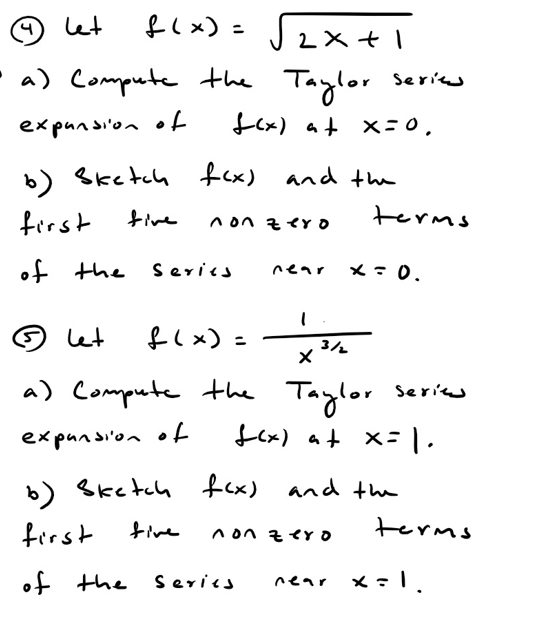 ④ Let f(x) = √(2x+1)
a) Compute the Taylor series
expansion of f(x) at x=0.
b) Sketch f(x) and the
first five nonzero terms
of the series near x=0.
⑤ Let f(x) = 1/x^(3/2)
a) Compute the Taylor series
expansion of f(x) at x=1.
b) Sketch f(x) and the
first five nonzero terms
of the series near x=1.